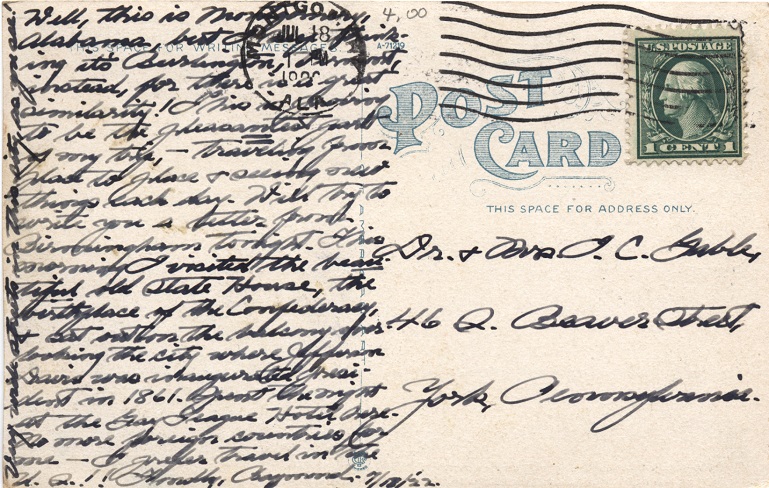 Well, this is Montgomery,
Alabama, best I
ing its Burlington, Vermont,
instead, for there is great
similarity! This is going
to be the pleasantest part
of my trip, – traveling from
place to place & seeing new
things each day. Will try to
write you a letter from
Birmingham tonight. This
morning I visited the beau-
tiful old State House, the
birthplace of the Confederacy,
& sat out on the balcony over-
looking the city where Jefferson
Davis was inaugurated Presi-
dent in 1861. Spent the night
at the Gay Teague Hotel here.
No more foreign countries for
me – I prefer travel in the
U. S.!! Raymond. 7/18/22
THIS SPACE FOR WRITING MESSAGES.
A-71849
4.00
MONTGO
JUL 18
1 PM
ALA
U.S. POSTAGE
1 CENT 1
POST
CARD
THIS SPACE FOR ADDRESS ONLY.
Dr. & Mrs I. C. Gable,
46 S. Beaver Street,
York, Pennsylvania.